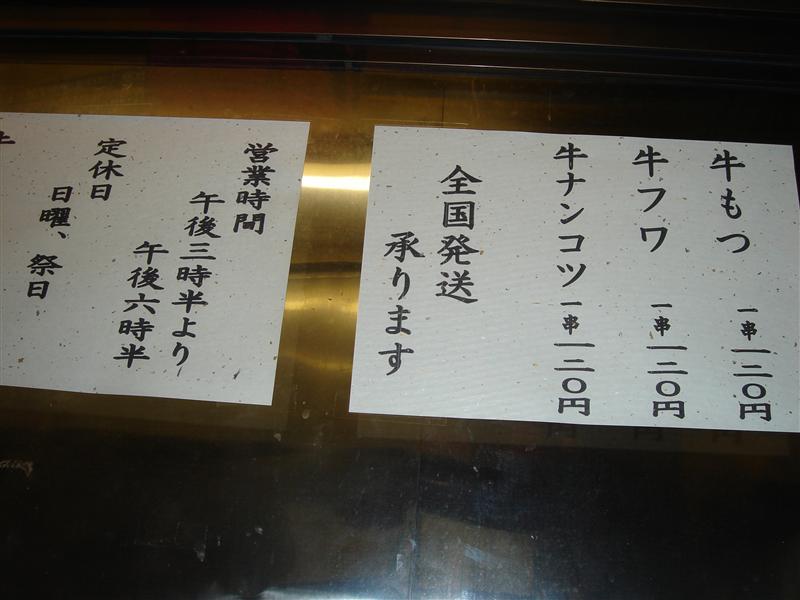 牛もつ 一串一二〇円
牛フワ 一串一二〇円
牛ナンコツ 一串一二〇円
全国発送
承ります
営業時間
午後三時半より
午後六時半
定休日
日曜、祭日